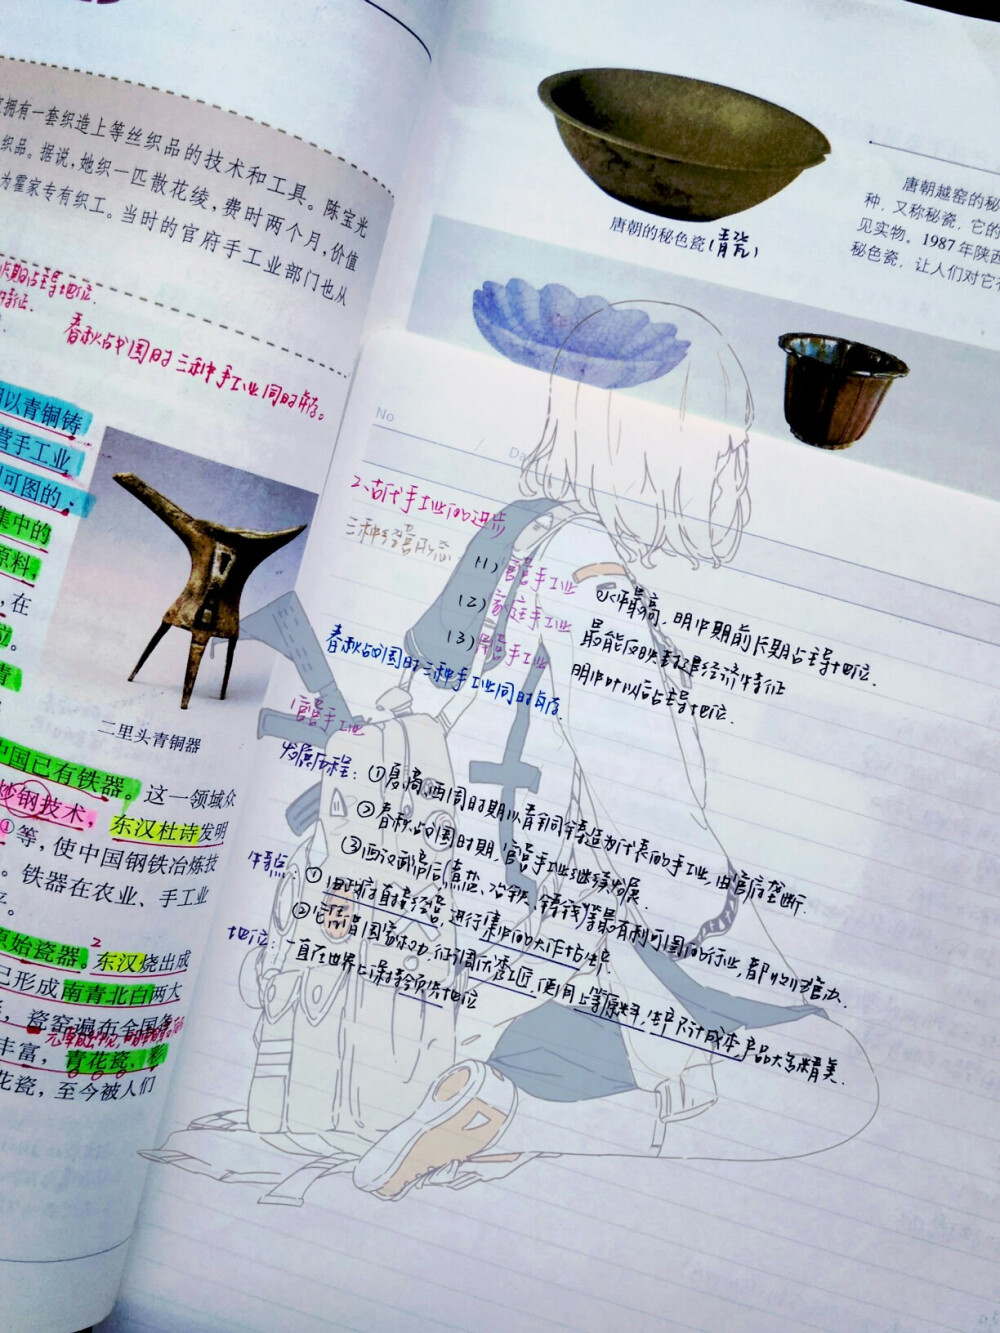 拥有一套织造上等丝织品的技术和工具。陈宝光
织品。据说，她织一匹散花绫，费时两个月，价值
为霍家专有织工。当时的官府手工业部门也从
春秋战国时三种手工业同时存在。
以青铜铸
营手工业
可图的
集中的
原料，
，在
二里头青铜器
中国已有铁器。这一领域众
炒钢技术，东汉杜诗发明
①等，使中国钢铁冶炼技
。铁器在农业、手工业
原始瓷器。东汉烧出成
已形成南青北白两大
瓷窑遍布全国各
丰富，青花瓷、彩
花瓷，至今被人们
唐朝的秘色瓷(青瓷)
唐朝越窑的秘
种，又称秘瓷，它的
见实物。1987年陕西
秘色瓷，让人们对它
No
Da
2、古代手工业的进步
三种经营形态
(1)官营手工业 水平最高，明中期前长期占主导地位．
(2)家庭手工业 最能反映封建经济特征
(3)民营手工业 明中叶以后占主导地位．
春秋战国时三种手工业同时存在．
官营手工业
发展历程：①夏、商、西周时期以青铜铸造为代表的手工业，由官府垄断．
②春秋战国时期，官营手工业继续发展．
③西汉 后，(煮盐、冶铁、铸钱)等最有利可图的行业，都 官办．
特点：①由政府直接经营，进行集中的大作坊生产
② 征调 工匠，使用上等原料，生产不计成本，产品大多精美．
地位：一直在世界上保持领先地位